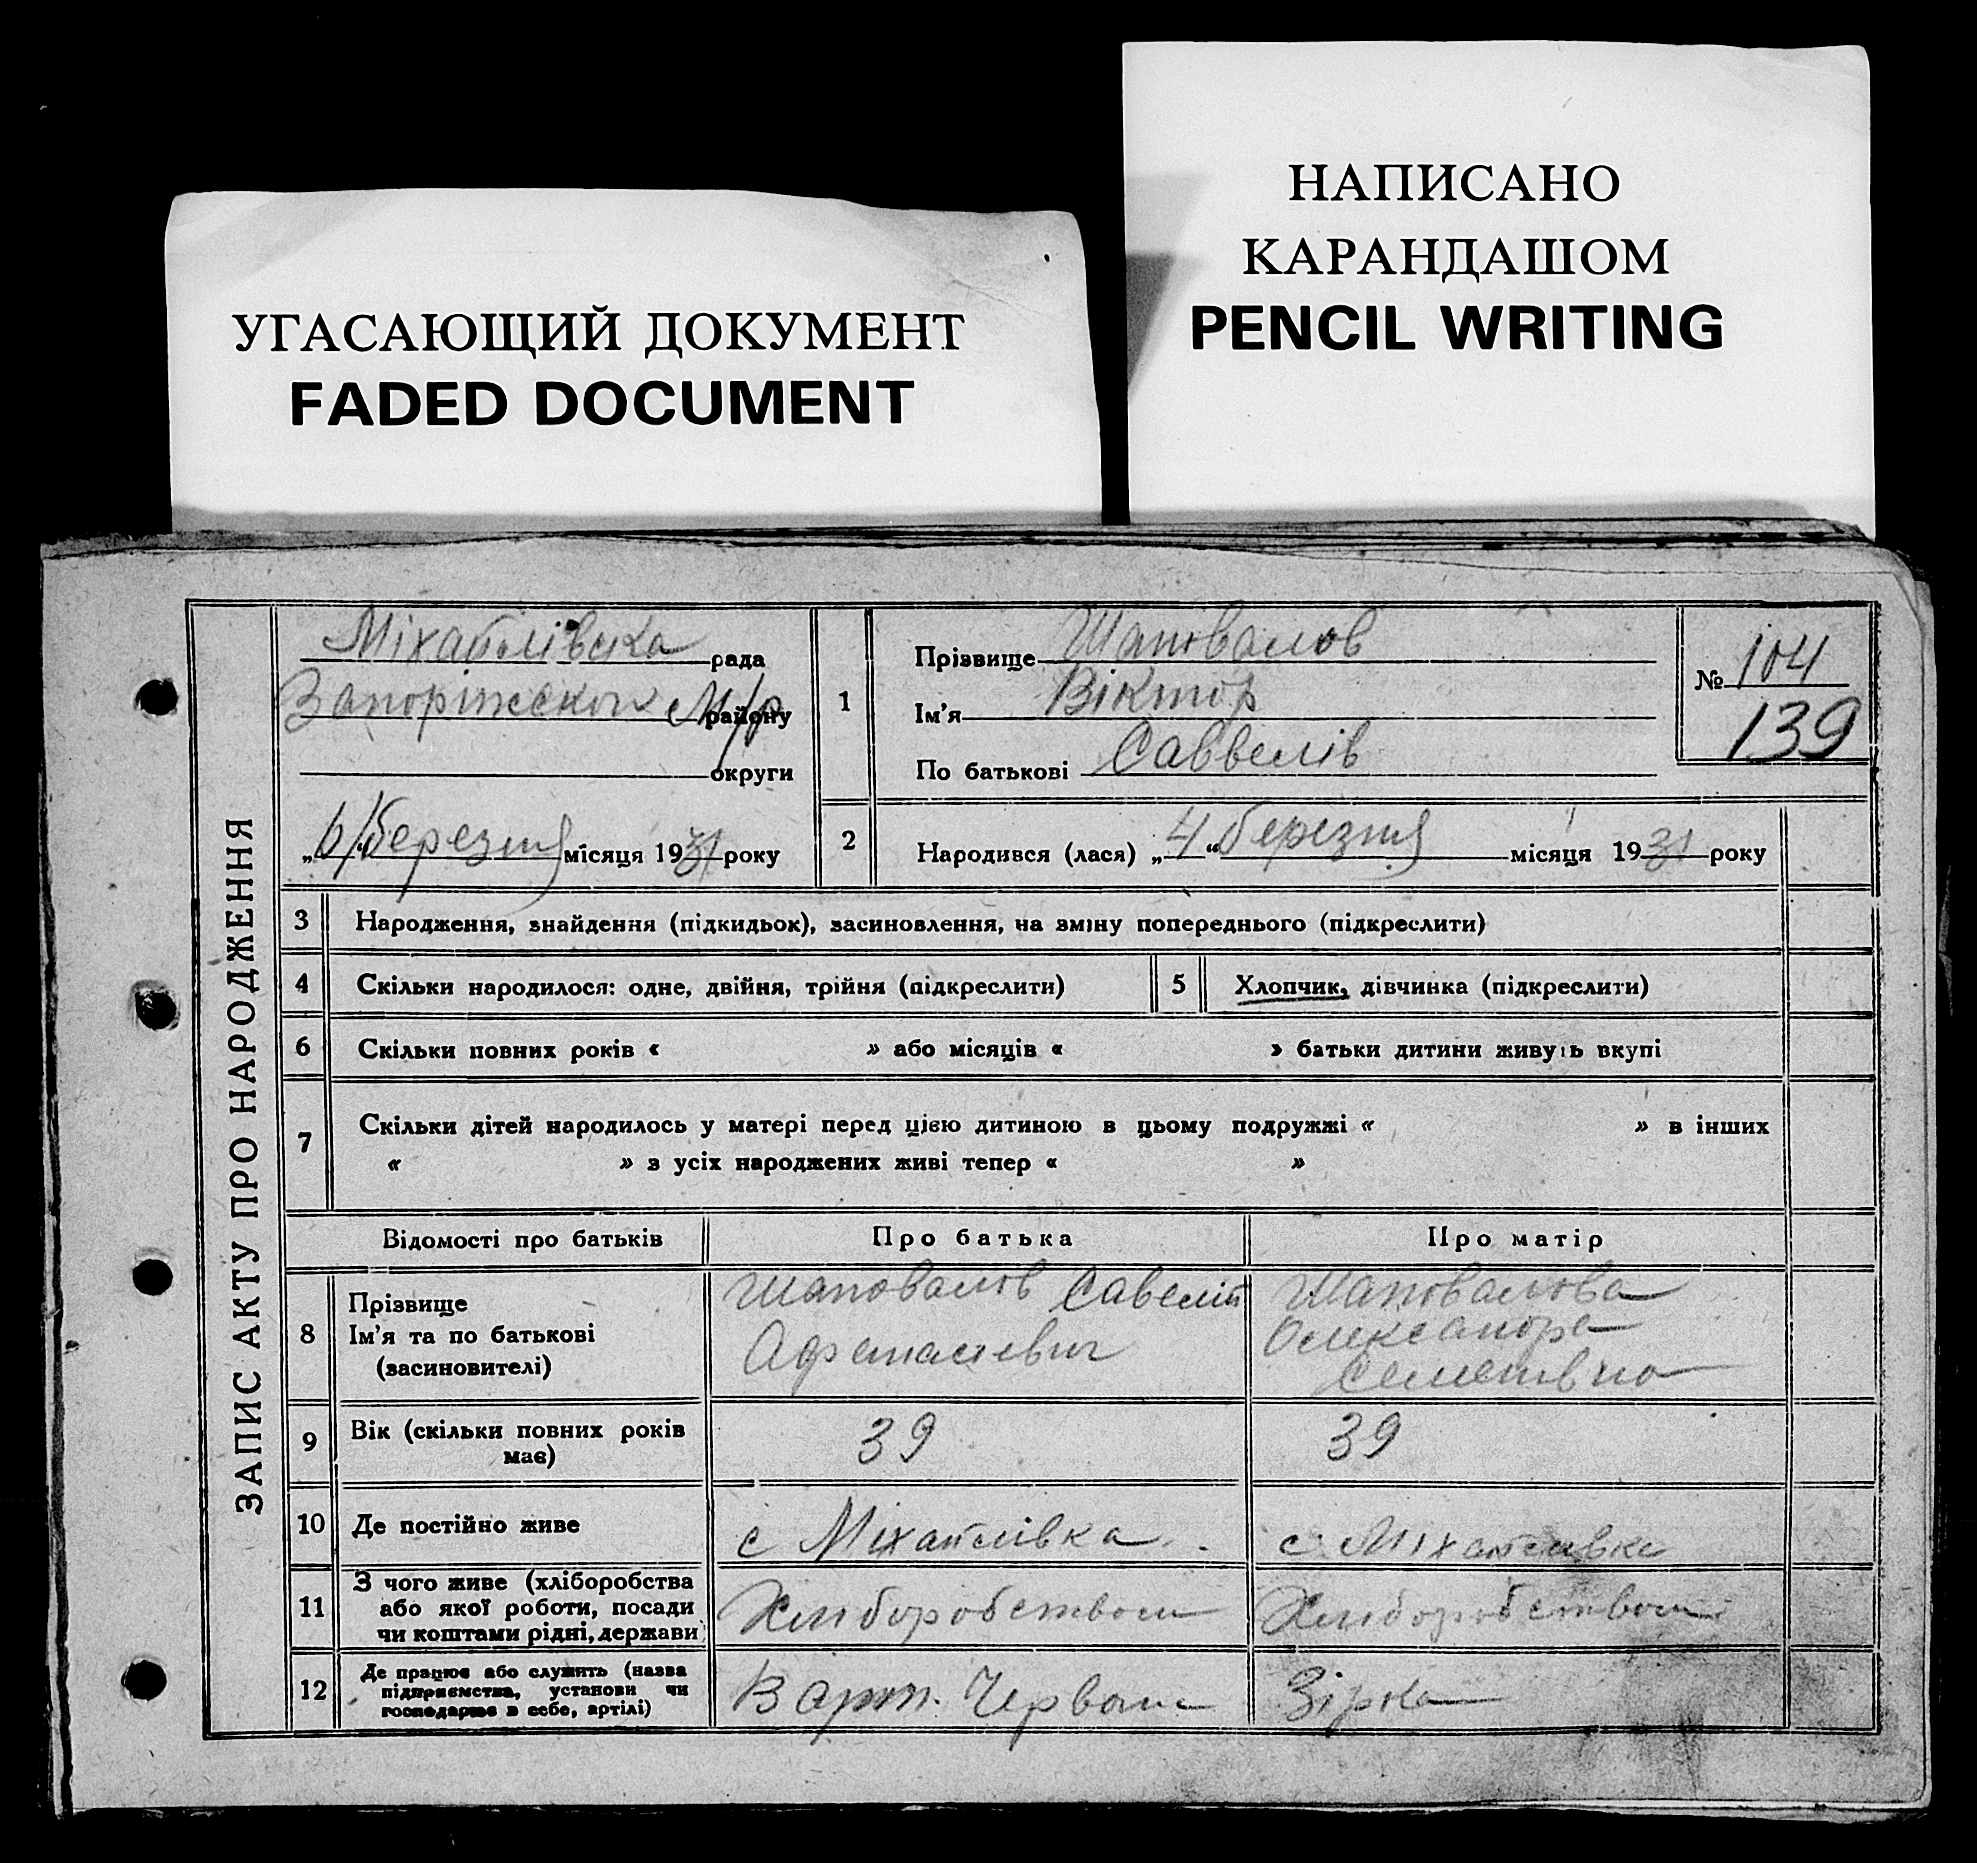 НАПИСАНО
КАРАНДАШОМ
PENCIL WRITING
УГАСАЮЩИЙ ДОКУМЕНТ
FADED DOCUMENT
ЗАПИС АКТУ ПРО НАРОДЖЕННЯ
Міхайлівська рада
Запоріжської М/р району
округи
„6/березня місяця 1931 року
1
Прізвище Шаповалов
Ім’я Віктор
По батькові Саввелів
№ 104
139
2
Народився (лася) „4“ березня місяця 1931 року
3 Народження, знайдення (підкидьок), засиновлення, на зміну попереднього (підкреслити)
4 Скільки народилося: одне, двійня, трійня (підкреслити) 5 Хлопчик, дівчинка (підкреслити)
6 Скільки повних років « » або місяців « » батьки дитини живуть вкупі
7 Скільки дітей народилось у матері перед цією дитиною в цьому подружжі « » в інших
« » з усіх народжених живі тепер « »
Відомості про батьків Про батька Про матір
8
Прізвище
Ім’я та по батькові
(засиновителі)
Шаповалов Савелій
Афанасіевич
Шаповалова
Олександра
Семенівна
9 Вік (скільки повних років
має)
39 39
10 Де постійно живе с Міхайлівка с Міхайлівка
11
З чого живе (хліборобства
або якої роботи, посади
чи коштами рідні, держави)
Хліборобством Хліборобством
12
Де працює або служить (назва
підприємства, установи чи
господарює в себе, артілі)
В арт. Червона Зірка